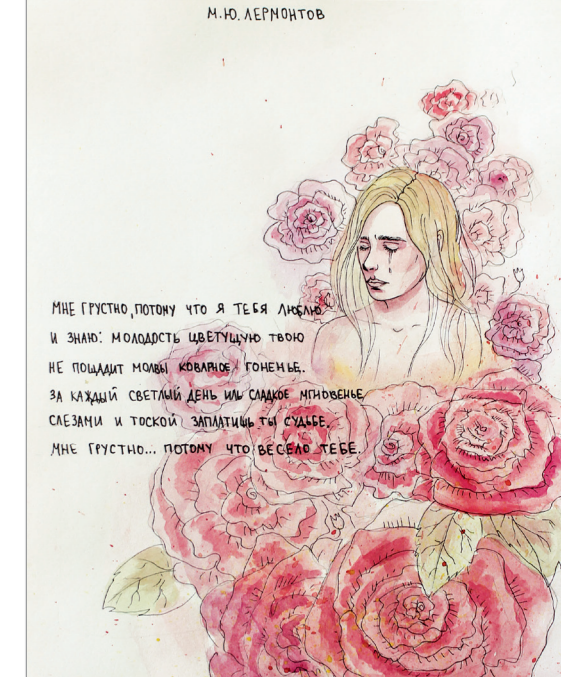 М.Ю. ЛЕРМОНТОВ
МНЕ ГРУСТНО, ПОТОМУ ЧТО Я ТЕБЯ ЛЮБЛЮ
И ЗНАЮ: МОЛОДОСТЬ ЦВЕТУЩУЮ ТВОЮ
НЕ ПОЩАДИТ МОЛВЫ КОВАРНОЕ ГОНЕНЬЕ.
ЗА КАЖДЫЙ СВЕТЛЫЙ ДЕНЬ ИЛЬ СЛАДКОЕ МГНОВЕНЬЕ
СЛЕЗАМИ И ТОСКОЙ ЗАПЛАТИШЬ ТЫ СУДЬБЕ.
МНЕ ГРУСТНО... ПОТОМУ ЧТО ВЕСЕЛО ТЕБЕ.